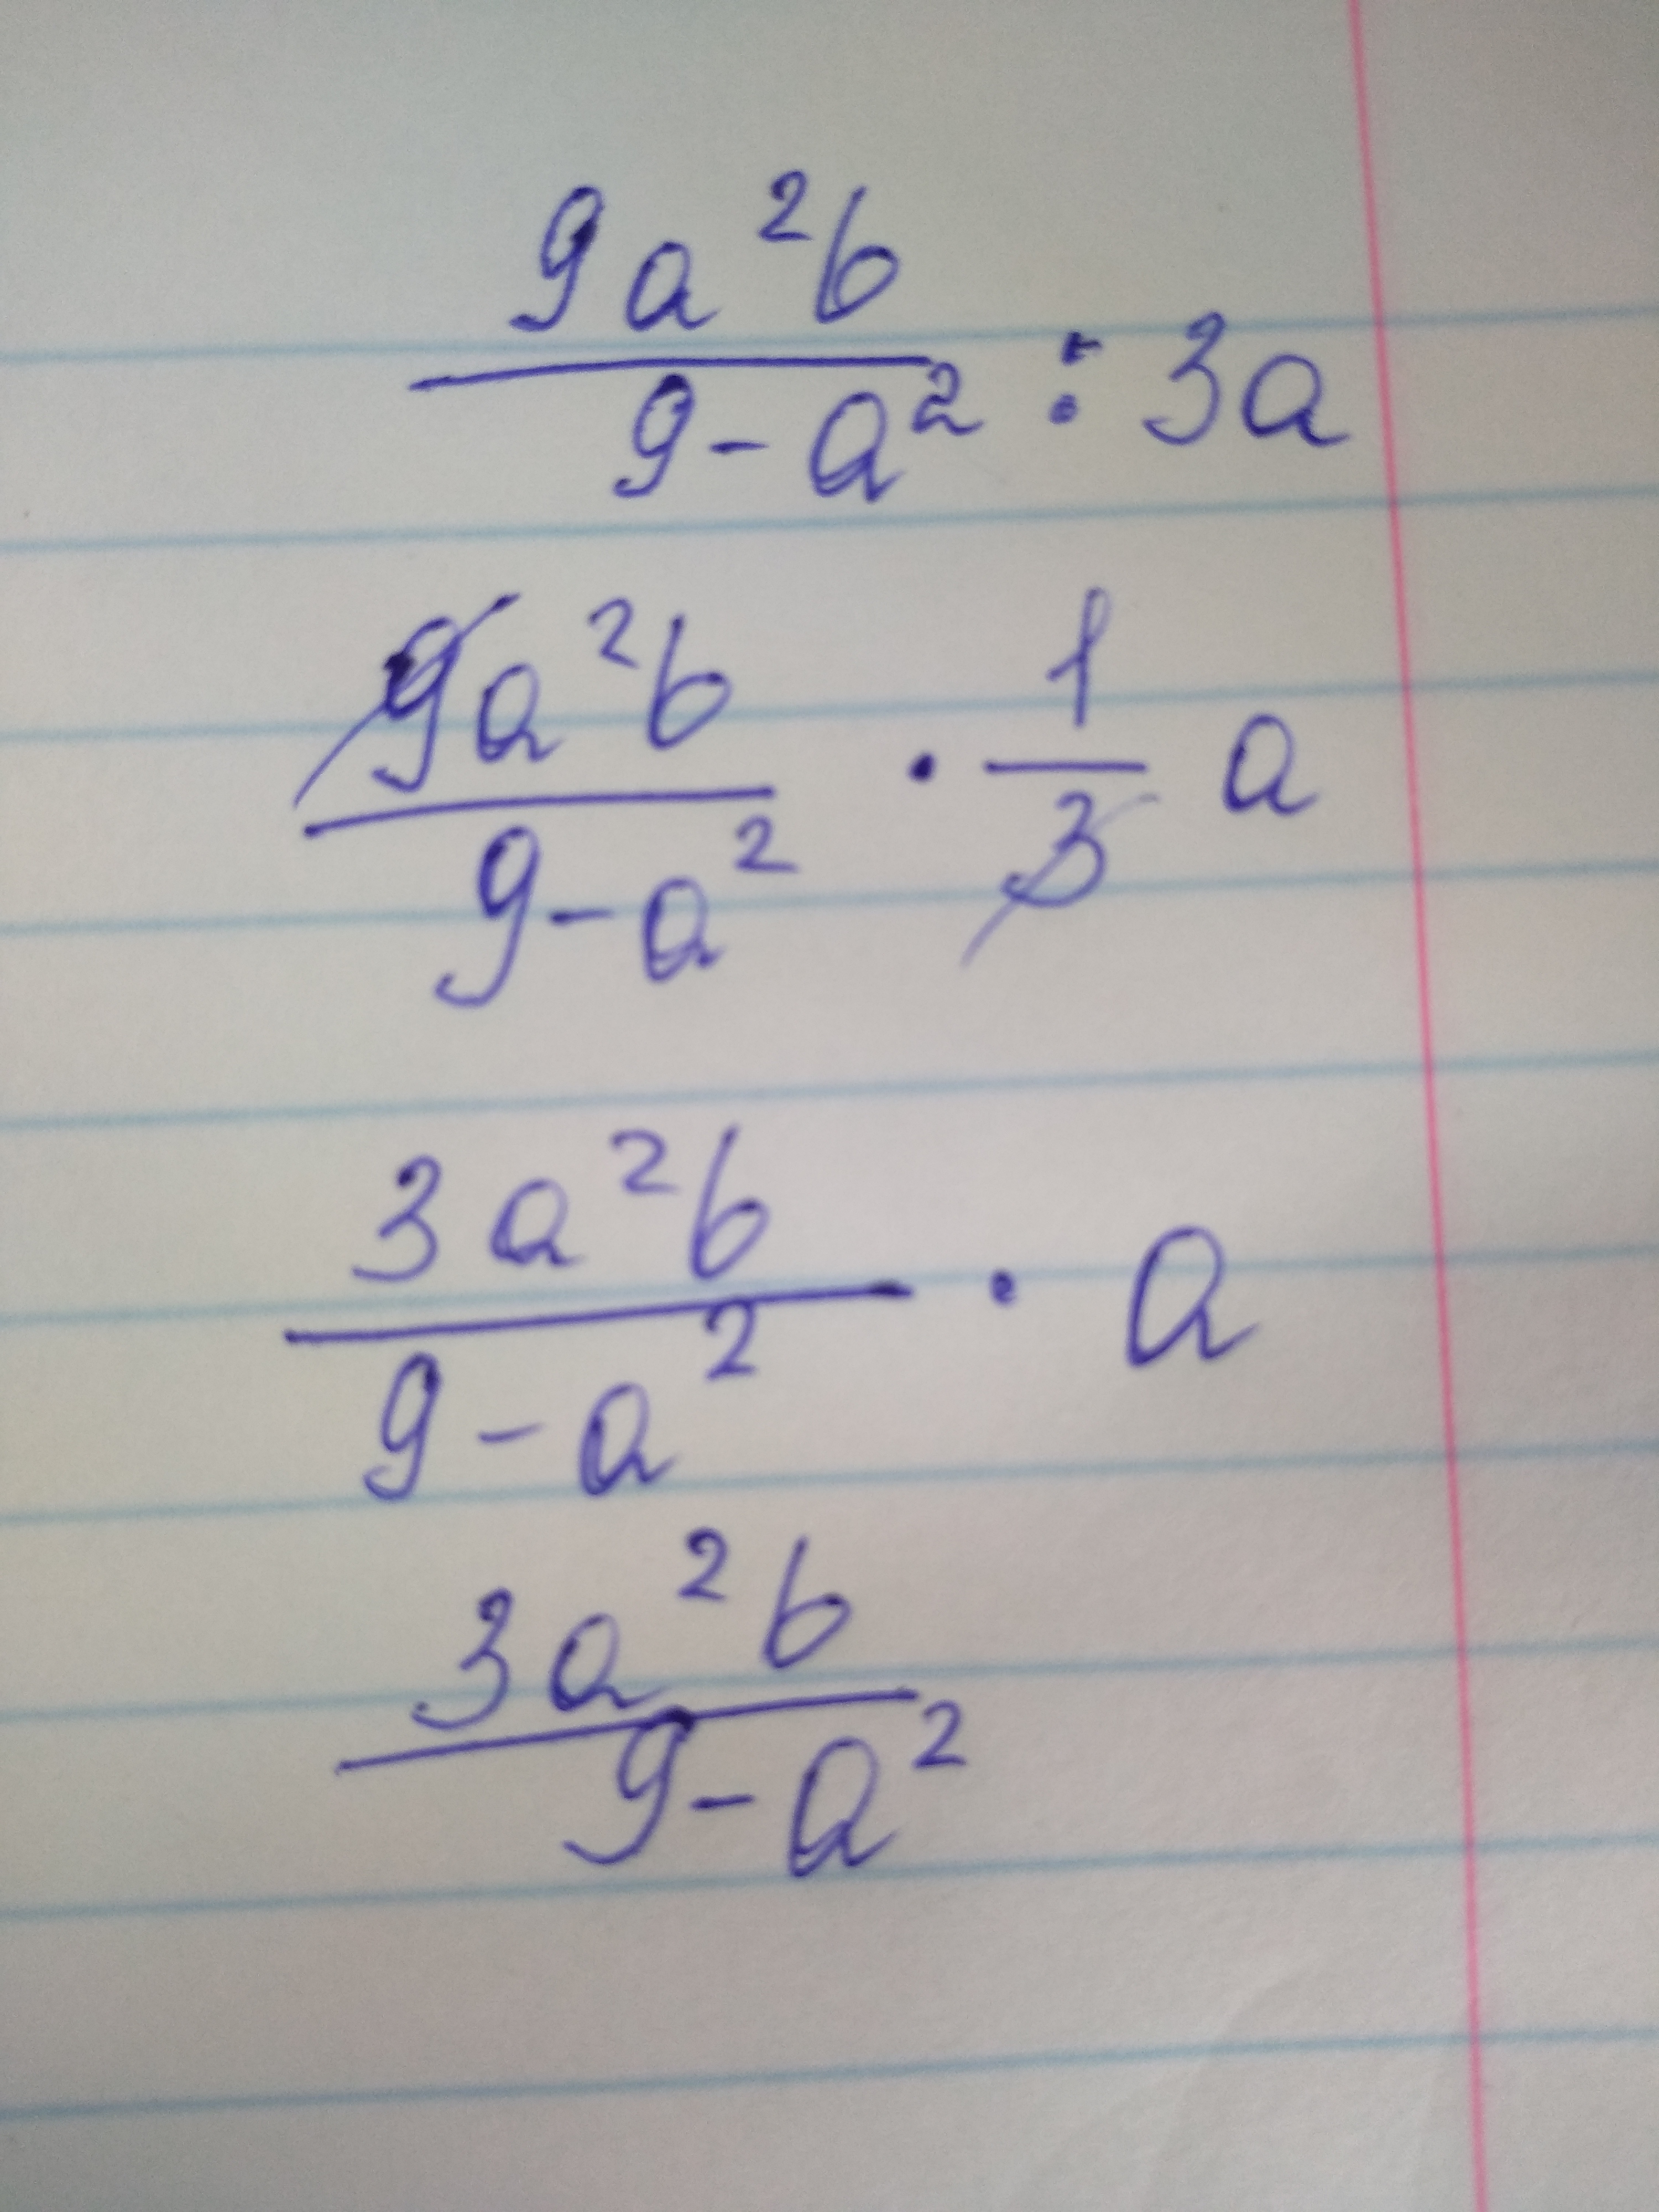 9a²b / 9-a² : 3a
9a²b / 9-a² · 1/3 a
3a²b / 9-a² · a
3a²b / 9-a²